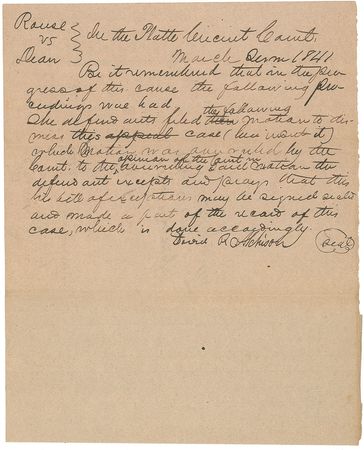 Rouse
vs
Dean
In the Platte Circuit Court
March Term 1841
Be it remembered that in the pro
gress of this cause the following pro
ceedings was had
the following
The defendants filed their motion to dis
miss the appeal case (here insert it)
which motion was overruled by the
opinion of the Court in
Court. to the overruling said motion the
defendant excepts and prays that this
his bill of exceptions may be signed sealed
and made a part of the record of this
case, which is done accordingly.
David R. Atchison
Seal